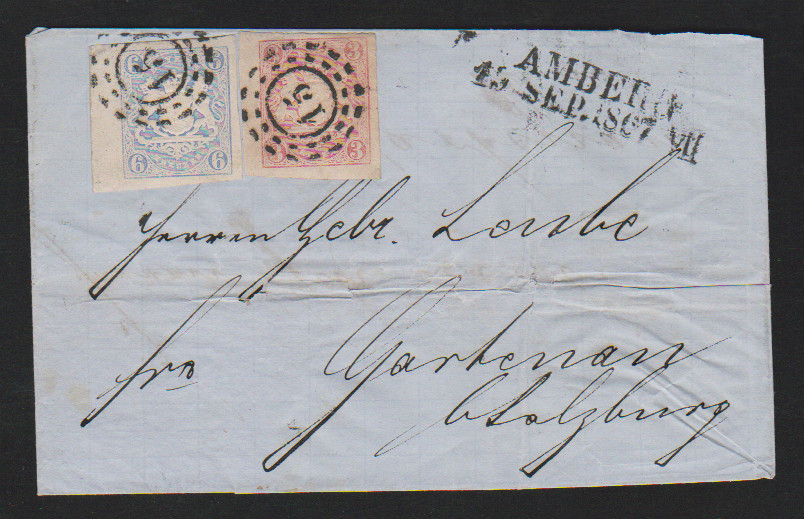 6 6
6 6
15
3 3
3 3
15
AMBERG
15 SEP. 1867 VII
Herren Gebr. Leube
fro
Gartenau
b/Salzburg